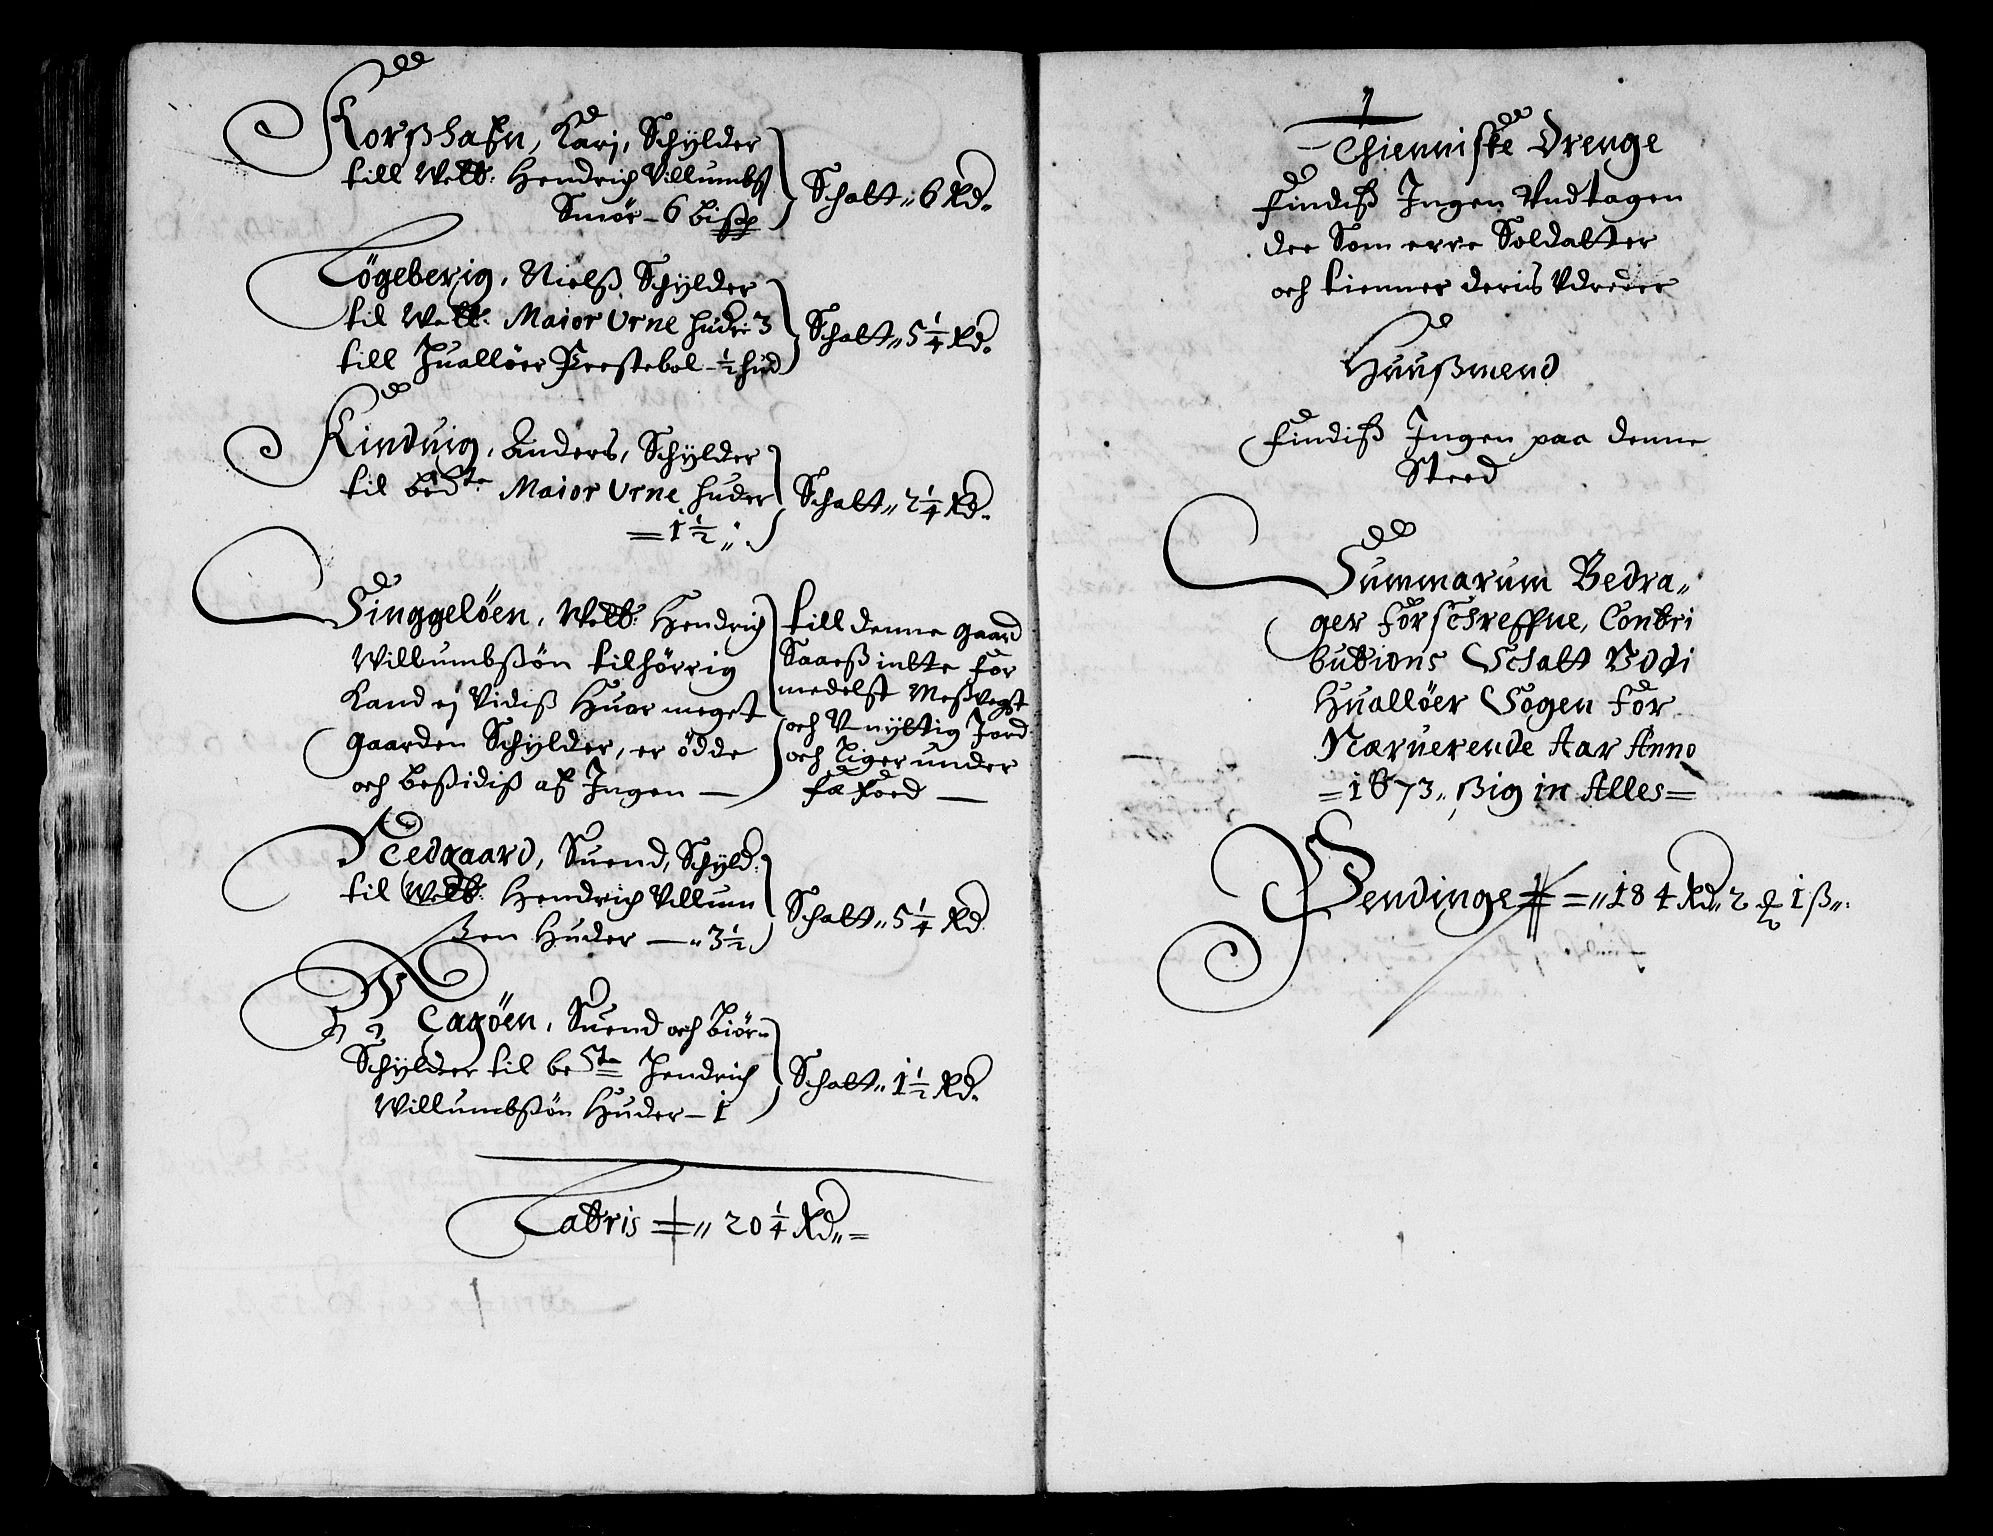 Korßhafn, Karj, Schÿlder
till Welb: Hendrich Villumbß
Smör - 6 bißp
Schatt„ 6 Rd.
Løgeberig, Nielß Schÿlder
til Welb: Maior Urne huder 3
till Hualløer Prestebol - ½ hud
Schatt„ 5 ¼ Rd.
Kinduig, Anders, Schÿlder
til bedte Maior Urne huder
= 1 ½ „
Schatt„ 2 ¼ Rd.
Singgeløen, Welb: Hendrich
Wilbumbßøn tilhörrig
Kand ej Vidiß Huor meget
gaarden Schÿlder, er ödde
och beßidiß af Ingen —
till denne gaard
Saaeß intte for
medelst Meßvegst
och Vnÿttig Jord
och Liger under
fæ foed —
Redgaard, Suend, Schÿld:
til Welb: Hendrich Villum
ßen Huder — „ 3 ½
Schatt„ 5 ¼ Rd
Schÿlder til beSte Hendrich
Willumbßøn Huder - 1
Schatt„ 1 ½ Rd.
Latris = „ 20 ¼ Rd„ =
Thienniste Drenge
Findiß Ingen Vndtagen
dee Som erre Soldatter
och tienner deris Vdreder
Huußmend
Findiß Ingen paa denne
Sted
Summarum Bedra„
ger forschreffne, Contri
butions Schatt Vdi
Hualløer Sogen for
Nærverende Aar Anno
= 1673„ ßig in Alles =
Pendinge = „ 184 Rd„ 2 ꝶ 1 ß„.